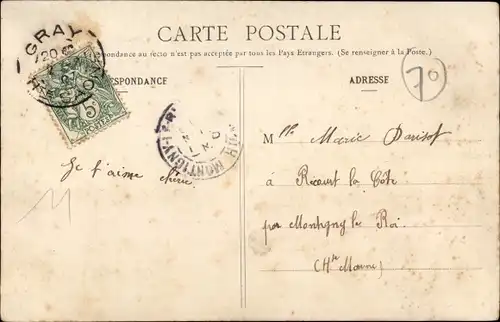 CARTE POSTALE
pondance au recto n'est pas acceptée par tous les Pays Etrangers. (Se renseigner à la Poste.)
RESPONDANCE
ADRESSE
70
GRAY
5c
POSTES
MONTIGNY-LE-R
Je t'aime chérie
M
Mlle Marie Parisot
à Récourt la Côte
par Montigny le Roi
(Hte Marne)